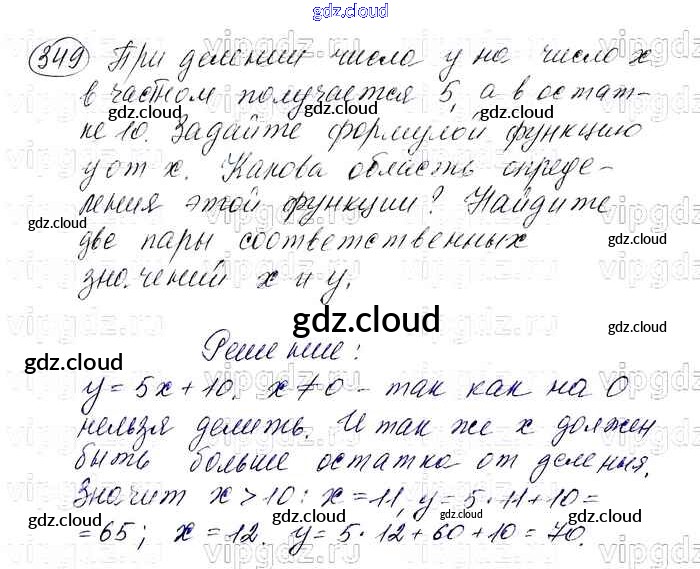 gdz.cloud
349 При делении числа y на число x
в частном получается 5, а в остат-
ке 10. Задайте формулой функцию
y от x. Какова область опреде-
ления этой функции? Найдите
две пары соответственных
значений x и y.
Решение:
y = 5x + 10, x ≠ 0 - так как на 0
нельзя делить. И так же x должен
быть больше остатка от деления.
Значит x > 10 : x = 11, y = 5·11+10 =
= 65; x = 12. y = 5·12+60+10 = 70.
gdz.cloud
gdz.cloud
gdz.cloud
gdz.cloud
gdz.cloud
gdz.cloud
gdz.cloud
gdz.cloud
gdz.cloud
gdz.cloud
gdz.cloud
gdz.cloud